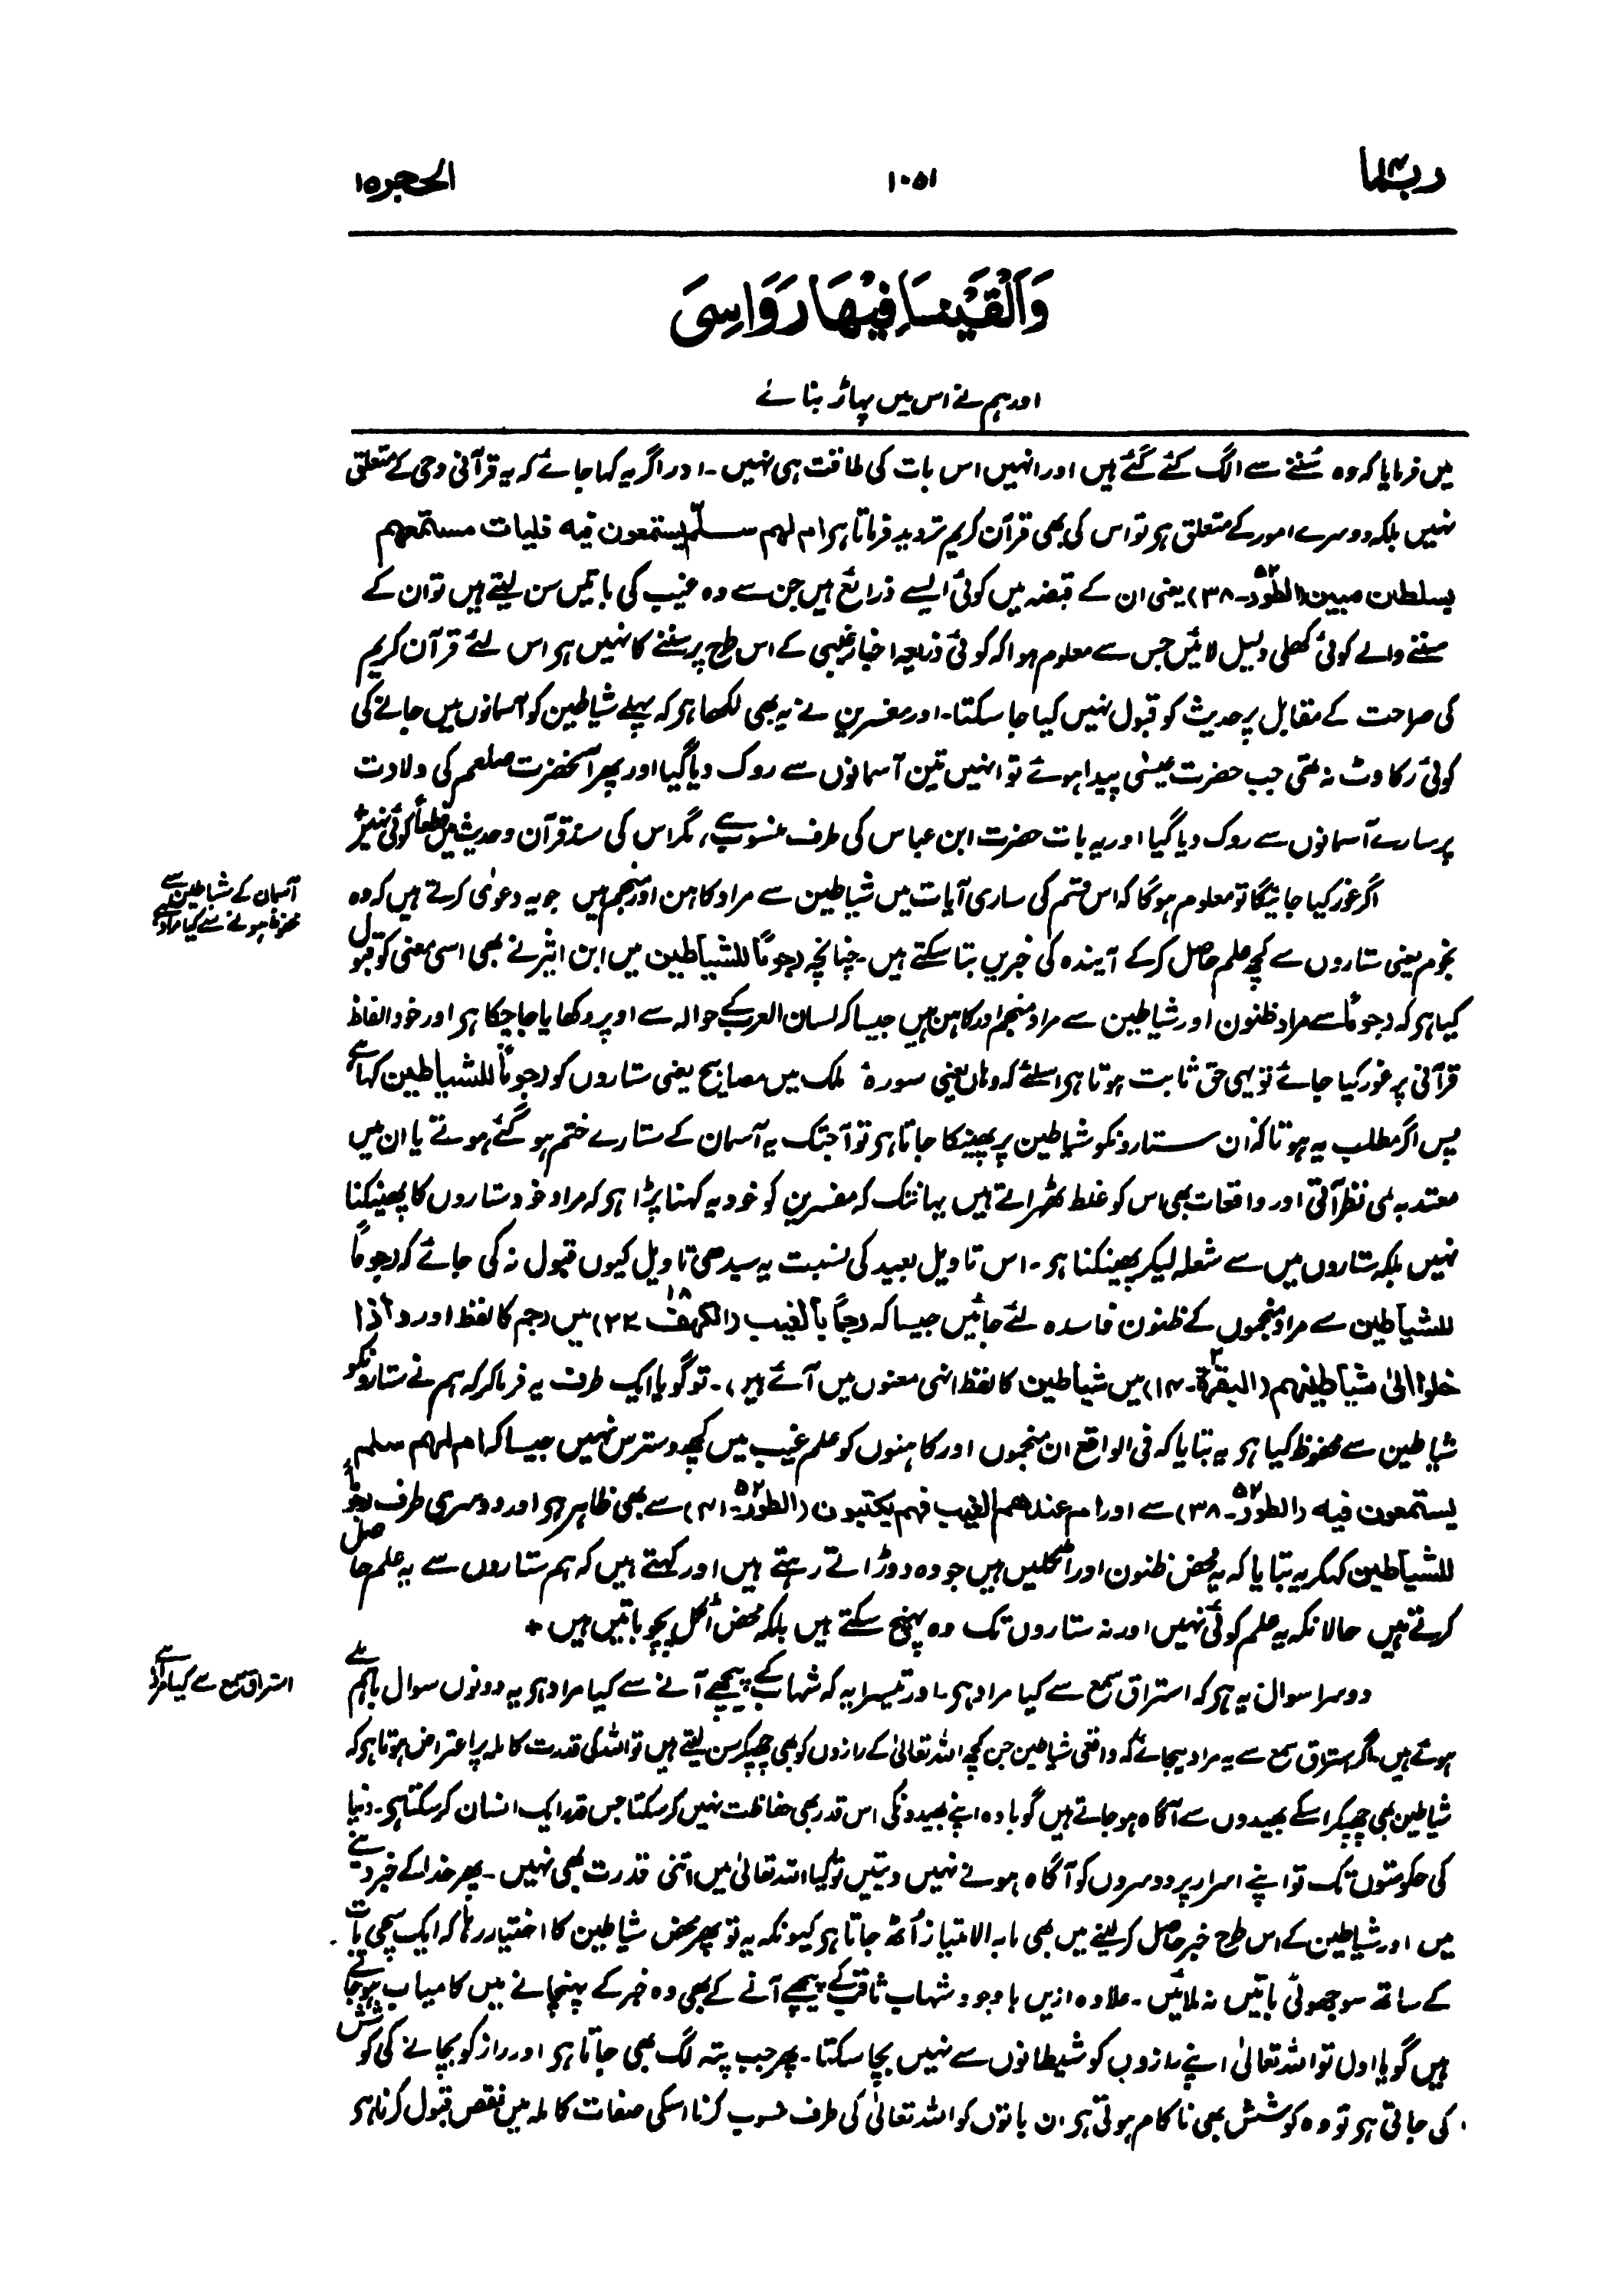 ربما ۱۴
۱۰۵۱
الحجر ۱۵
وَاَلْقَيْنَا فِيْهَا رَوَاسِيَ
اور ہم نے اس میں پہاڑ بنائے
میں فرمایا کہ وہ سُننے سے الگ کئے گئے ہیں اور انہیں اس بات کی طاقت ہی نہیں ۔ اور اگر یہ کہا جائے کہ یہ قرآنی وحی کے متعلق
نہیں بلکہ دوسرے امور کے متعلق ہو تو اس کی بھی قرآن کریم تردید فرماتا ہو ام لہم سلّم یستمعون فیہ فلیات مستمعھم
بسلطان مبین (الطور۵۲۔۳۸) یعنی ان کے قبضہ میں کوئی ایسے ذرائع ہیں جن سے وہ غیب کی باتیں سن لیتے ہیں تو ان کے
سننے والے کوئی کھلی دلیل لائیں جس سے معلوم ہوا کہ کوئی ذریعہ اخبار غیبی کے اس طرح پر سننے کا نہیں ہو اس لئے قرآن کریم
کی صراحت کے مقابل پر حدیث کو قبول نہیں کیا جا سکتا۔ اور مفسرین نے یہ بھی لکھا ہو کہ پہلے شیاطین کو آسمانوں میں جانے کی
کوئی رکاوٹ نہ تھی جب حضرت عیسٰی پیدا ہوئے تو انہیں تین آسمانوں سے روک دیا گیا اور پھر آنحضرت صلعم کی ولادت
پر سارے آسمانوں سے روک دیا گیا اور یہ بات حضرت ابن عباس کی طرف منسوب ہے، مگر اس کی سند قرآن و حدیث میں قطعاً کوئی نہیں +
اگر غور کیا جائیگا تو معلوم ہوگا کہ اس قسم کی ساری آیات میں شیاطین سے مراد کاہن اور منجم ہیں جو یہ دعوٰی کرتے ہیں کہ وہ
آسمان کے شیاطین سے
محفوظ ہونے سے کیا مراد ہے
نجوم یعنی ستاروں سے کچھ علم حاصل کر کے آیندہ کی خبریں بتا سکتے ہیں۔ چنانچہ رجوما للشیاطین میں ابن اثیر نے بھی اسی معنی کو قبول
کیا ہو کہ رجوماً سے مراد ظنون اور شیاطین سے مراد منجم اور کاہن ہیں جیسا کہ لسان العرب کے حوالہ سے اوپر دکھایا جا چکا ہو اور خود الفاظ
قرآنی پر غور کیا جائے تو یہی حق ثابت ہوتا ہو اسلئے کہ وہاں یعنی سورۂ ملک میں مصابیح یعنی ستاروں کو رجوماً للشیاطین کہا ہے
پس اگر مطلب یہ ہوتا کہ ان ستارونکو شیاطین پر پھینکا جاتا ہو تو آجتک یہ آسمان کے ستارے ختم ہو گئے ہوتے یا ان میں
معتد بہ کمی نظر آتی اور واقعات بھی اس کو غلط ٹھراتے ہیں یہانتک کہ مفسرین کو خود یہ کہنا پڑا ہو کہ مراد خود ستاروں کا پھینکنا
نہیں بلکہ ستاروں میں سے شعلہ لیکر پھینکنا ہو۔ اس تاویل بعید کی نسبت یہ سیدھی تاویل کیوں قبول نہ کی جائے کہ رجوماً
للشیاطین سے مراد منجموں کے ظنون فاسدہ لئے جائیں جیسا کہ رجما بالغیب (الکہف۱۸۔۲۲) میں رجم کا لفظ اور واذا
خلوا الیٰ شیاطینہم (البقرۃ۲۔۱۴) میں شیاطین کا لفظ انہی معنوں میں آئے ہیں ۔ تو گویا ایک طرف یہ فرما کر کہ ہم نے ستارونکو
شیاطین سے محفوظ کیا ہو یہ بتایا کہ فی الواقع ان منجموں اور کاہنوں کو علم غیب میں کچھ دسترس نہیں جیسا کہ ام لہم سلم
یستمعون فیہ (الطور۵۲۔۳۸) سے اور ام عندھم الغیب فہم یکتبون (الطور۵۲۔۴۱) سے بھی ظاہر ہو اور دوسری طرف رجوماً
للشیاطین کہکر یہ بتایا کہ یہ محض ظنون اور اٹکلیں ہیں جو وہ دوڑاتے رہتے ہیں اور کہتے ہیں کہ ہم ستاروں سے یہ علم حاصل
کرتے ہیں حالانکہ یہ علم کوئی نہیں اور نہ ستاروں تک وہ پہنچ سکتے ہیں بلکہ محض اٹکل پچو باتیں ہیں +
دوسرا سوال یہ ہو کہ استراق سمع سے کیا مراد ہو۔ اور تیسرا یہ کہ شہاب کے پیچھے آنے سے کیا مراد ہو یہ دونوں سوال باہم ملے
استراق سمع سے کیا مراد ہے
ہوئے ہیں۔ اگر استراق سمع سے یہ مراد لیجائے کہ واقعی شیاطین جن کچھ اللہ تعالیٰ کے رازوں کو بھی چھپکر سن لیتے ہیں تو اللہ کی قدرت کاملہ پر اعتراض ہوتا ہو کہ
شیاطین بھی چھپکر اسکے بھیدوں سے آگاہ ہو جاتے ہیں گویا وہ اپنے بھیدونکی اس قدر بھی حفاظت نہیں کر سکتا جس قدر ایک انسان کر سکتا ہو۔ دنیا
کی حکومتوں تک تو اپنے اسرار پر دوسروں کو آگاہ ہونے نہیں دیتیں تو کیا اللہ تعالیٰ میں اتنی قدرت بھی نہیں ۔ پھر خدا کے خبر دینے
میں اور شیاطین کے اس طرح خبر حاصل کر لینے میں بھی مابہ الامتیاز اُٹھ جاتا ہو کیونکہ یہ تو پھر محض شیاطین کا اختیار رہا کہ ایک سچی بات
کے ساتھ سو جھوٹی باتیں نہ ملائیں ۔ علاوہ ازیں باوجود شہاب ثاقب کے پیچھے آنے کے بھی وہ خبر کے پہنچانے میں کامیاب ہو جاتے
ہیں گویا اول تو اللہ تعالیٰ اپنے رازوں کو شیطانوں سے نہیں بچا سکتا ۔ پھر جب پتہ لگ بھی جاتا ہو اور راز کو بچانے کی کوشش
کی جاتی ہو تو وہ کوشش بھی ناکام ہوتی ہو ان باتوں کو اللہ تعالیٰ کی طرف منسوب کرنا اسکی صفات کاملہ میں نقص قبول کرنا ہو